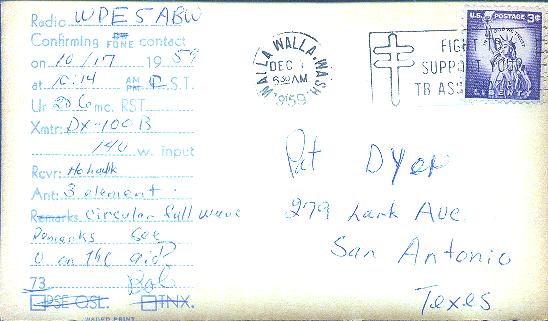 Radio WPE5ABW
Confirming CW FONE contact
on 10/17 1959
at 10:14 AM PM C.S.T.
Ur 28.6 mc. RST
Xmtr: DX-100 B
140 w. input
Rcvr:
Ant: 3 element
Remarks circular full wave
Remarks See
U on the air?
73 Bob
PSE QSL. TNX.
WALLA WALLA, WASH.
DEC 1
5:30 AM
1959
FIGHT TB
SUPPORT YOUR
TB ASS
U.S. POSTAGE 3¢
LIBERTY
Pat Dyer
279 Lark Ave.
San Antonio
Texas